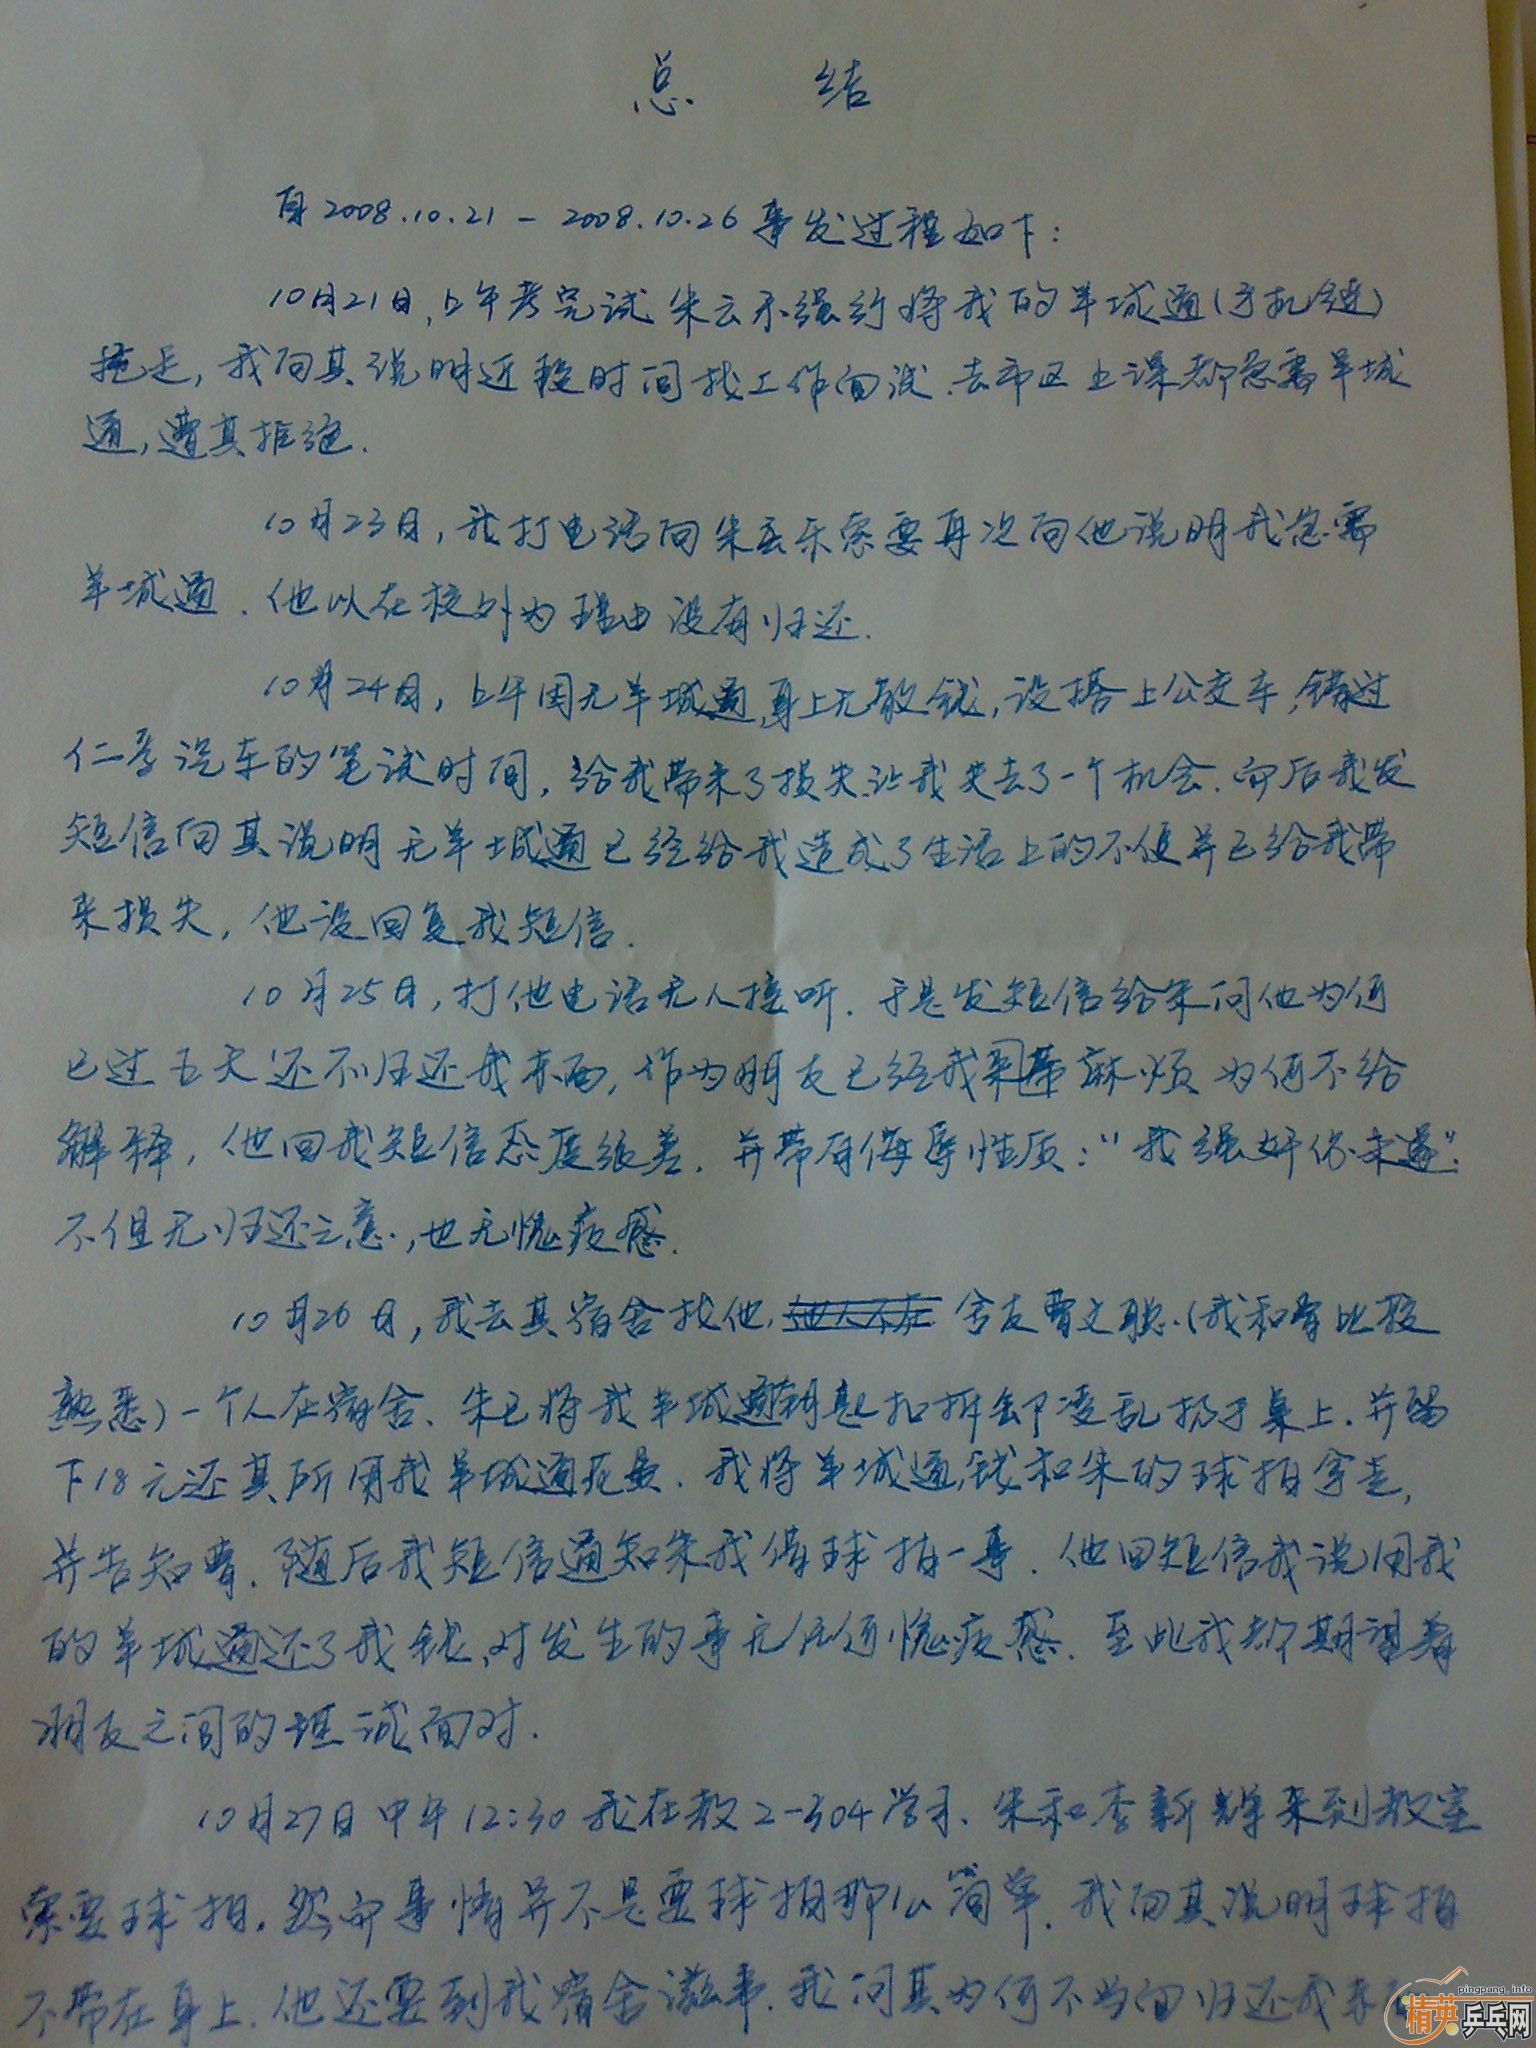 总 结
自2008.10.21-2008.10.26事发过程如下:
10月21日,上午考完试朱云乐强行将我的羊城通(手机链)
拖走,我向其说明近段时间找工作面试.去市区上课都急需羊城
通,遭其拒绝.
10月23日,我打电话向朱云乐索要再次向他说明我急需
羊城通.他以在校外为理由没有归还.
10月24日,上午因无羊城通,身上无散钱,没搭上公交车,错过
仁孚汽车的笔试时间,给我带来了损失让我失去了一个机会.而后我发
短信向其说明无羊城通已经给我造成了生活上的不便并已给我带
来损失,他没回复我短信.
10月25日,打他电话无人接听.于是发短信给朱问他为何
已过五天还不归还我东西,作为朋友已经我来带麻烦为何不给
解释,他回我短信态度很差.并带有侮辱性质:"我强奸你未遂".
不但无归还之意,也无愧疚感.
10月26日,我去其宿舍找他,他人不在 舍友曹文聪.(我和曹比较
熟悉)一个人在宿舍、朱已将我羊城通钥匙扣拆卸凌乱扔于桌上.并留
下18元还其所用我羊城通花费.我将羊城通,钱和朱的球拍拿走,
并告知曹.随后我短信通知朱我借球拍一事.他回短信我说用我
的羊城通还了我钱,对发生的事无任何愧疚感.至此我都期望着
朋友之间的坦诚面对.
10月27日中午12:30我在教2-304学习、朱和李新辉来到教室
索要球拍.然而事情并不是要球拍那么简单.我向其说明球拍
不带在身上.他还要到我宿舍滋事.我问其为何不当面归还我东西
pingpang.info
精英乒乓网